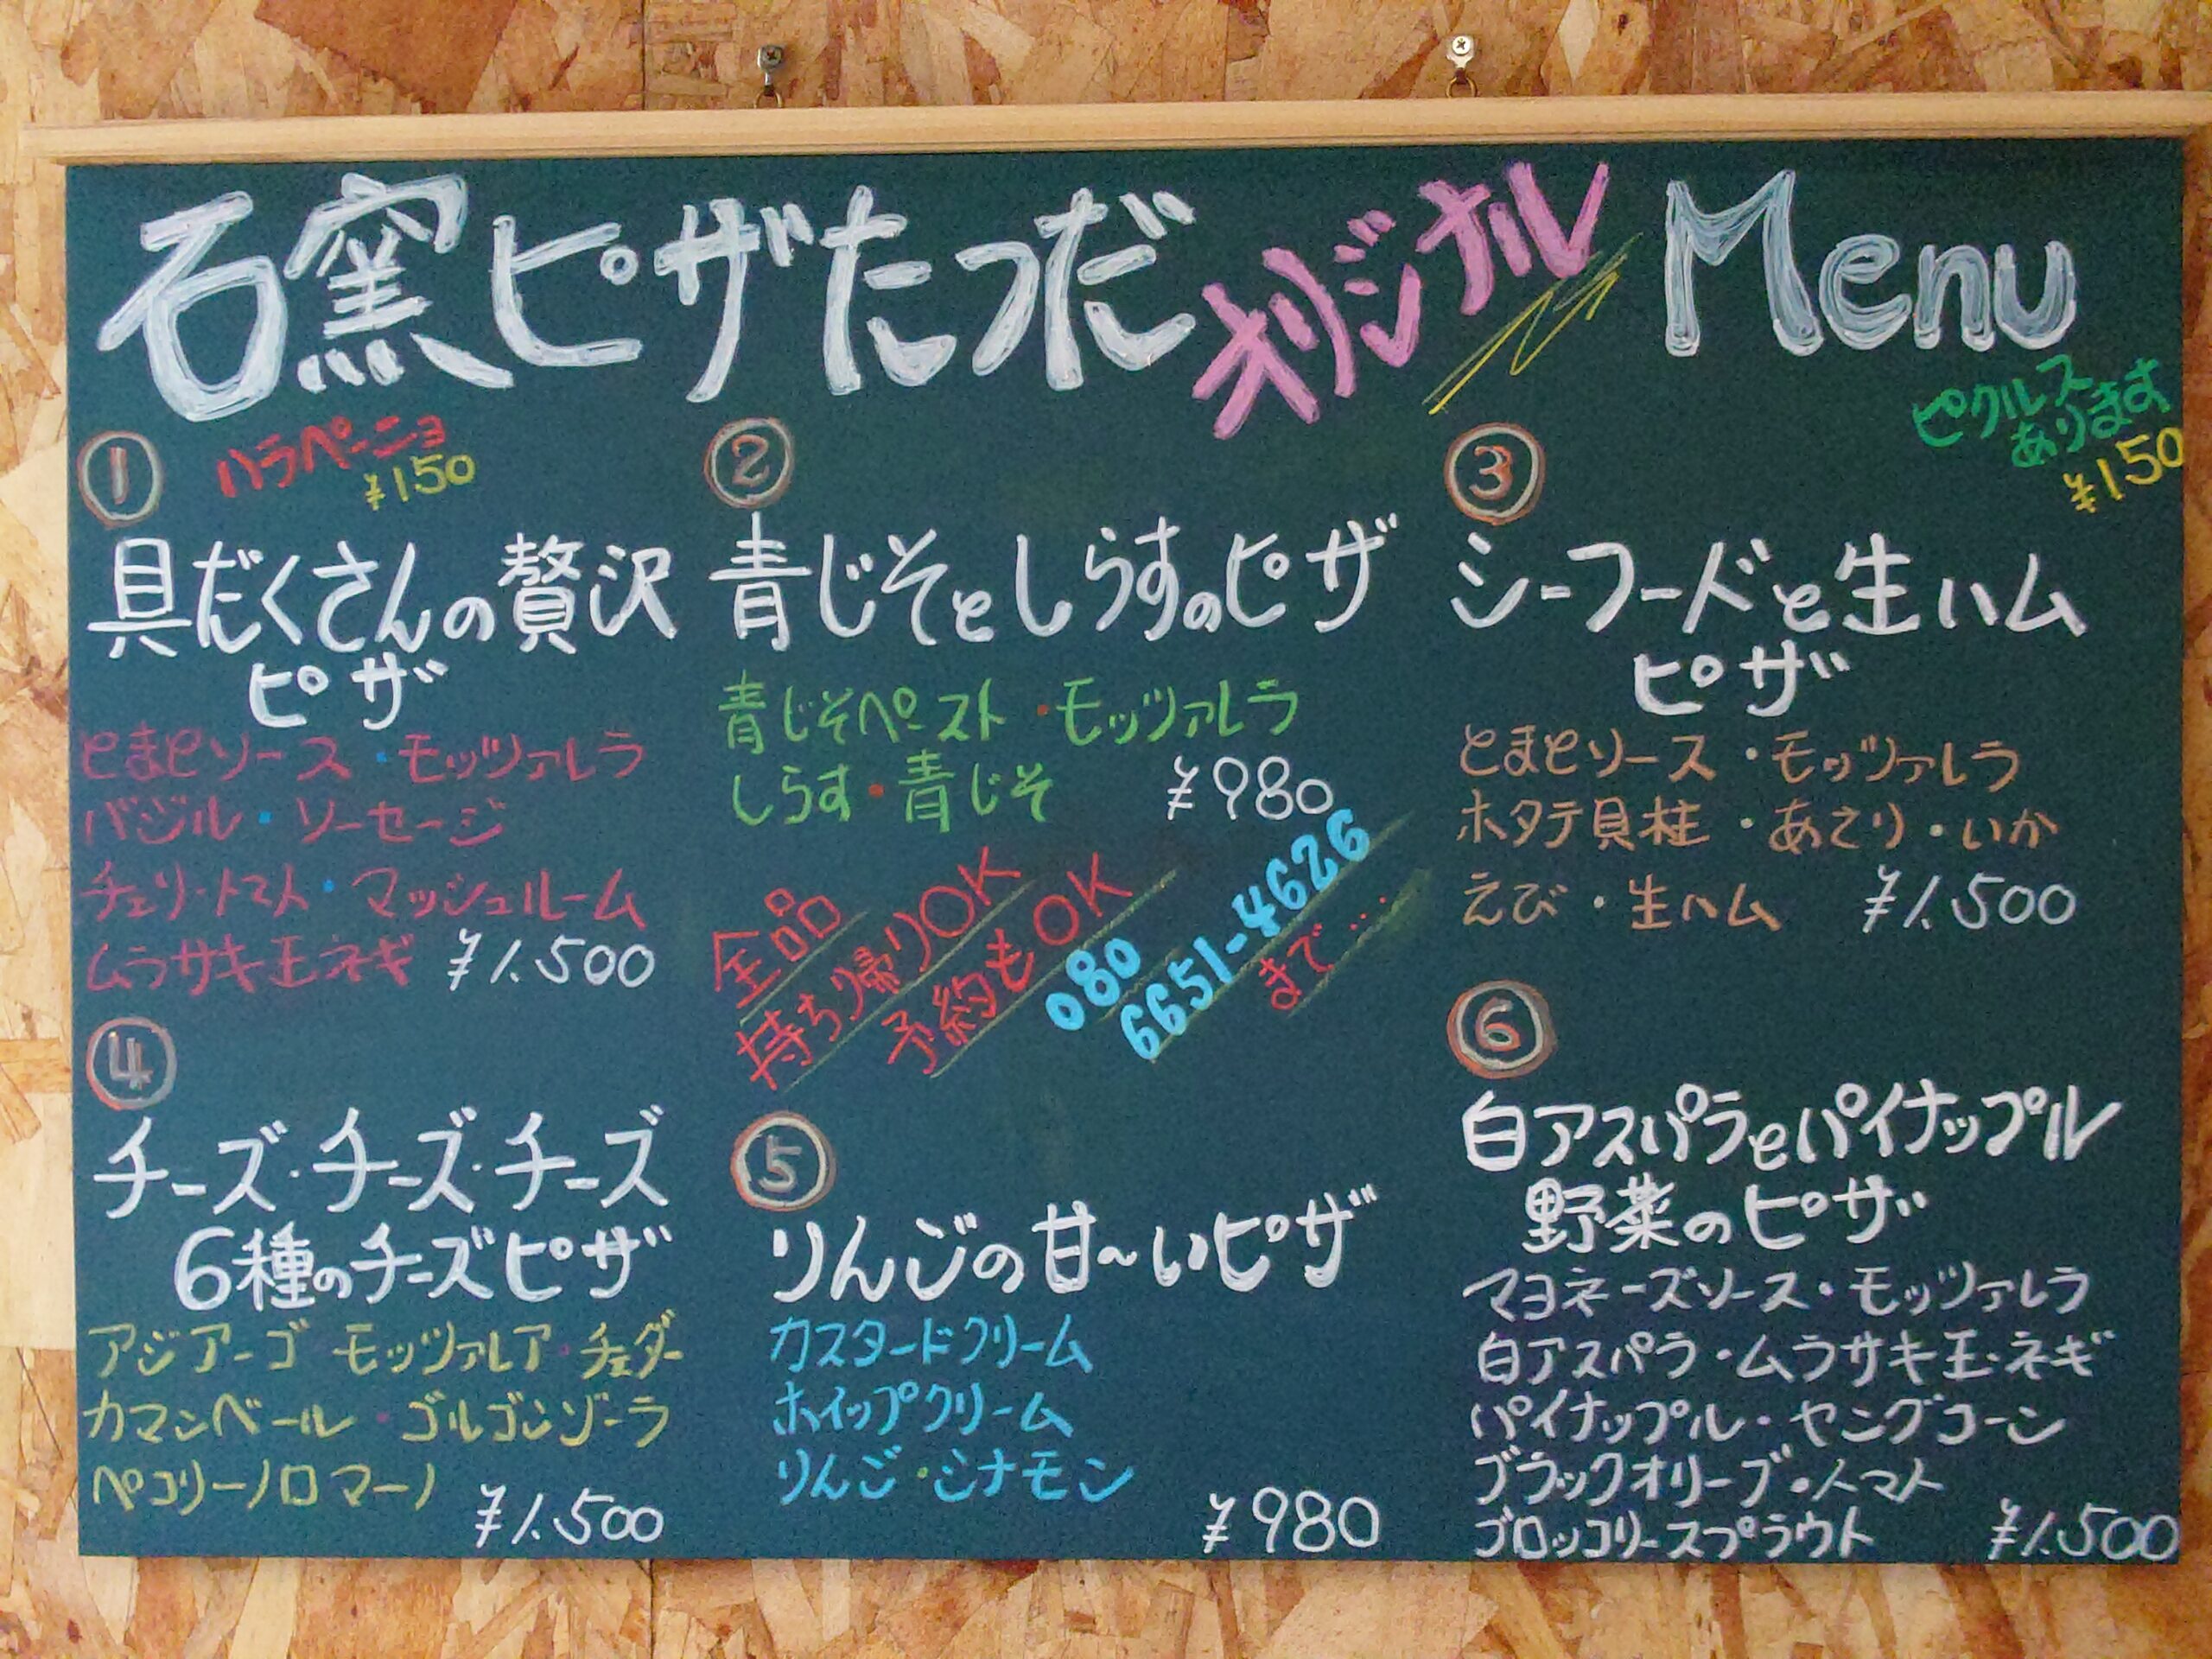 石窯ピザたつだ オリジナル Menu
ピクルス
あります
¥150
①
ハラペーニョ
¥150
具だくさんの贅沢
ピザ
とまとソース・モッツァレラ
バジル・ソーセージ
チェリートマト・マッシュルーム
ムラサキ玉ネギ ¥1.500
②
青じそとしらすのピザ
青じそペースト・モッツァレラ
しらす・青じそ ¥980
全品
持ち帰りOK
予約もOK
080
6651-4626
まで...
③
シーフードと生ハム
ピザ
とまとソース・モッツァレラ
ホタテ貝柱・あさり・いか
えび・生ハム ¥1.500
④
チーズ・チーズ・チーズ
6種のチーズピザ
アジアーゴ モッツァレア・チェダー
カマンベール・ゴルゴンゾーラ
ペコリーノロマーノ
¥1.500
⑤
りんごの甘〜いピザ
カスタードクリーム
ホイップクリーム
りんご・シナモン
¥980
⑥
白アスパラとパイナップル
野菜のピザ
マヨネーズソース・モッツァレラ
白アスパラ・ムラサキ玉ネギ
パイナップル・ヤングコーン
ブラックオリーブ・トマト
ブロッコリースプラウト ¥1.500